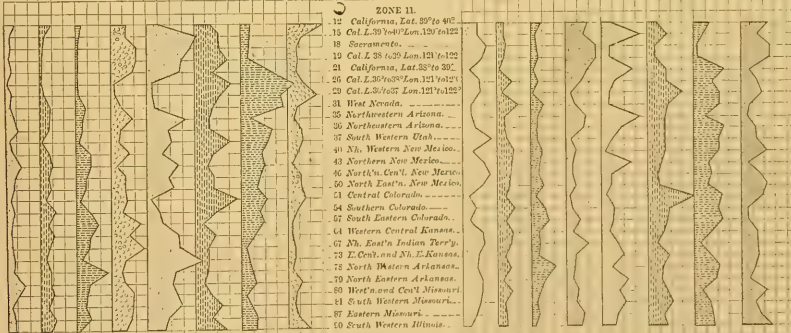 ZONE 11.
12 California, Lat. 39° to 40°
15 Cal. L. 39° to 40° Lon. 120° to 122
18 Sacramento.
19 Cal. L 38 to 39 Lon. 121° to 122
21 California, Lat. 38° to 39°
26 Cal. L. 36° to 38° Lon. 121° to 123
29 Cal. L. 36° to 37 Lon. 121° to 122°
31 West Nevada.
35 Northwestern Arizona.
36 Northeastern Arizona.
37 South Western Utah.
40 Nh. Western New Mexico.
43 Northern New Mexico.
46 North'n. Cen'l. New Mexico.
50 North East'n. New Mexico.
51 Central Colorado.
54 Southern Colorado.
57 South Eastern Colorado.
64 Western Central Kansas.
67 Nh. East'n Indian Terr'y.
73 E. Cen't. and Nh. E. Kansas.
78 North Western Arkansas.
79 North Eastern Arkansas.
80 West'n. and Cen'l Missouri.
81 South Western Missouri.
87 Eastern Missouri.
90 South Western Illinois.